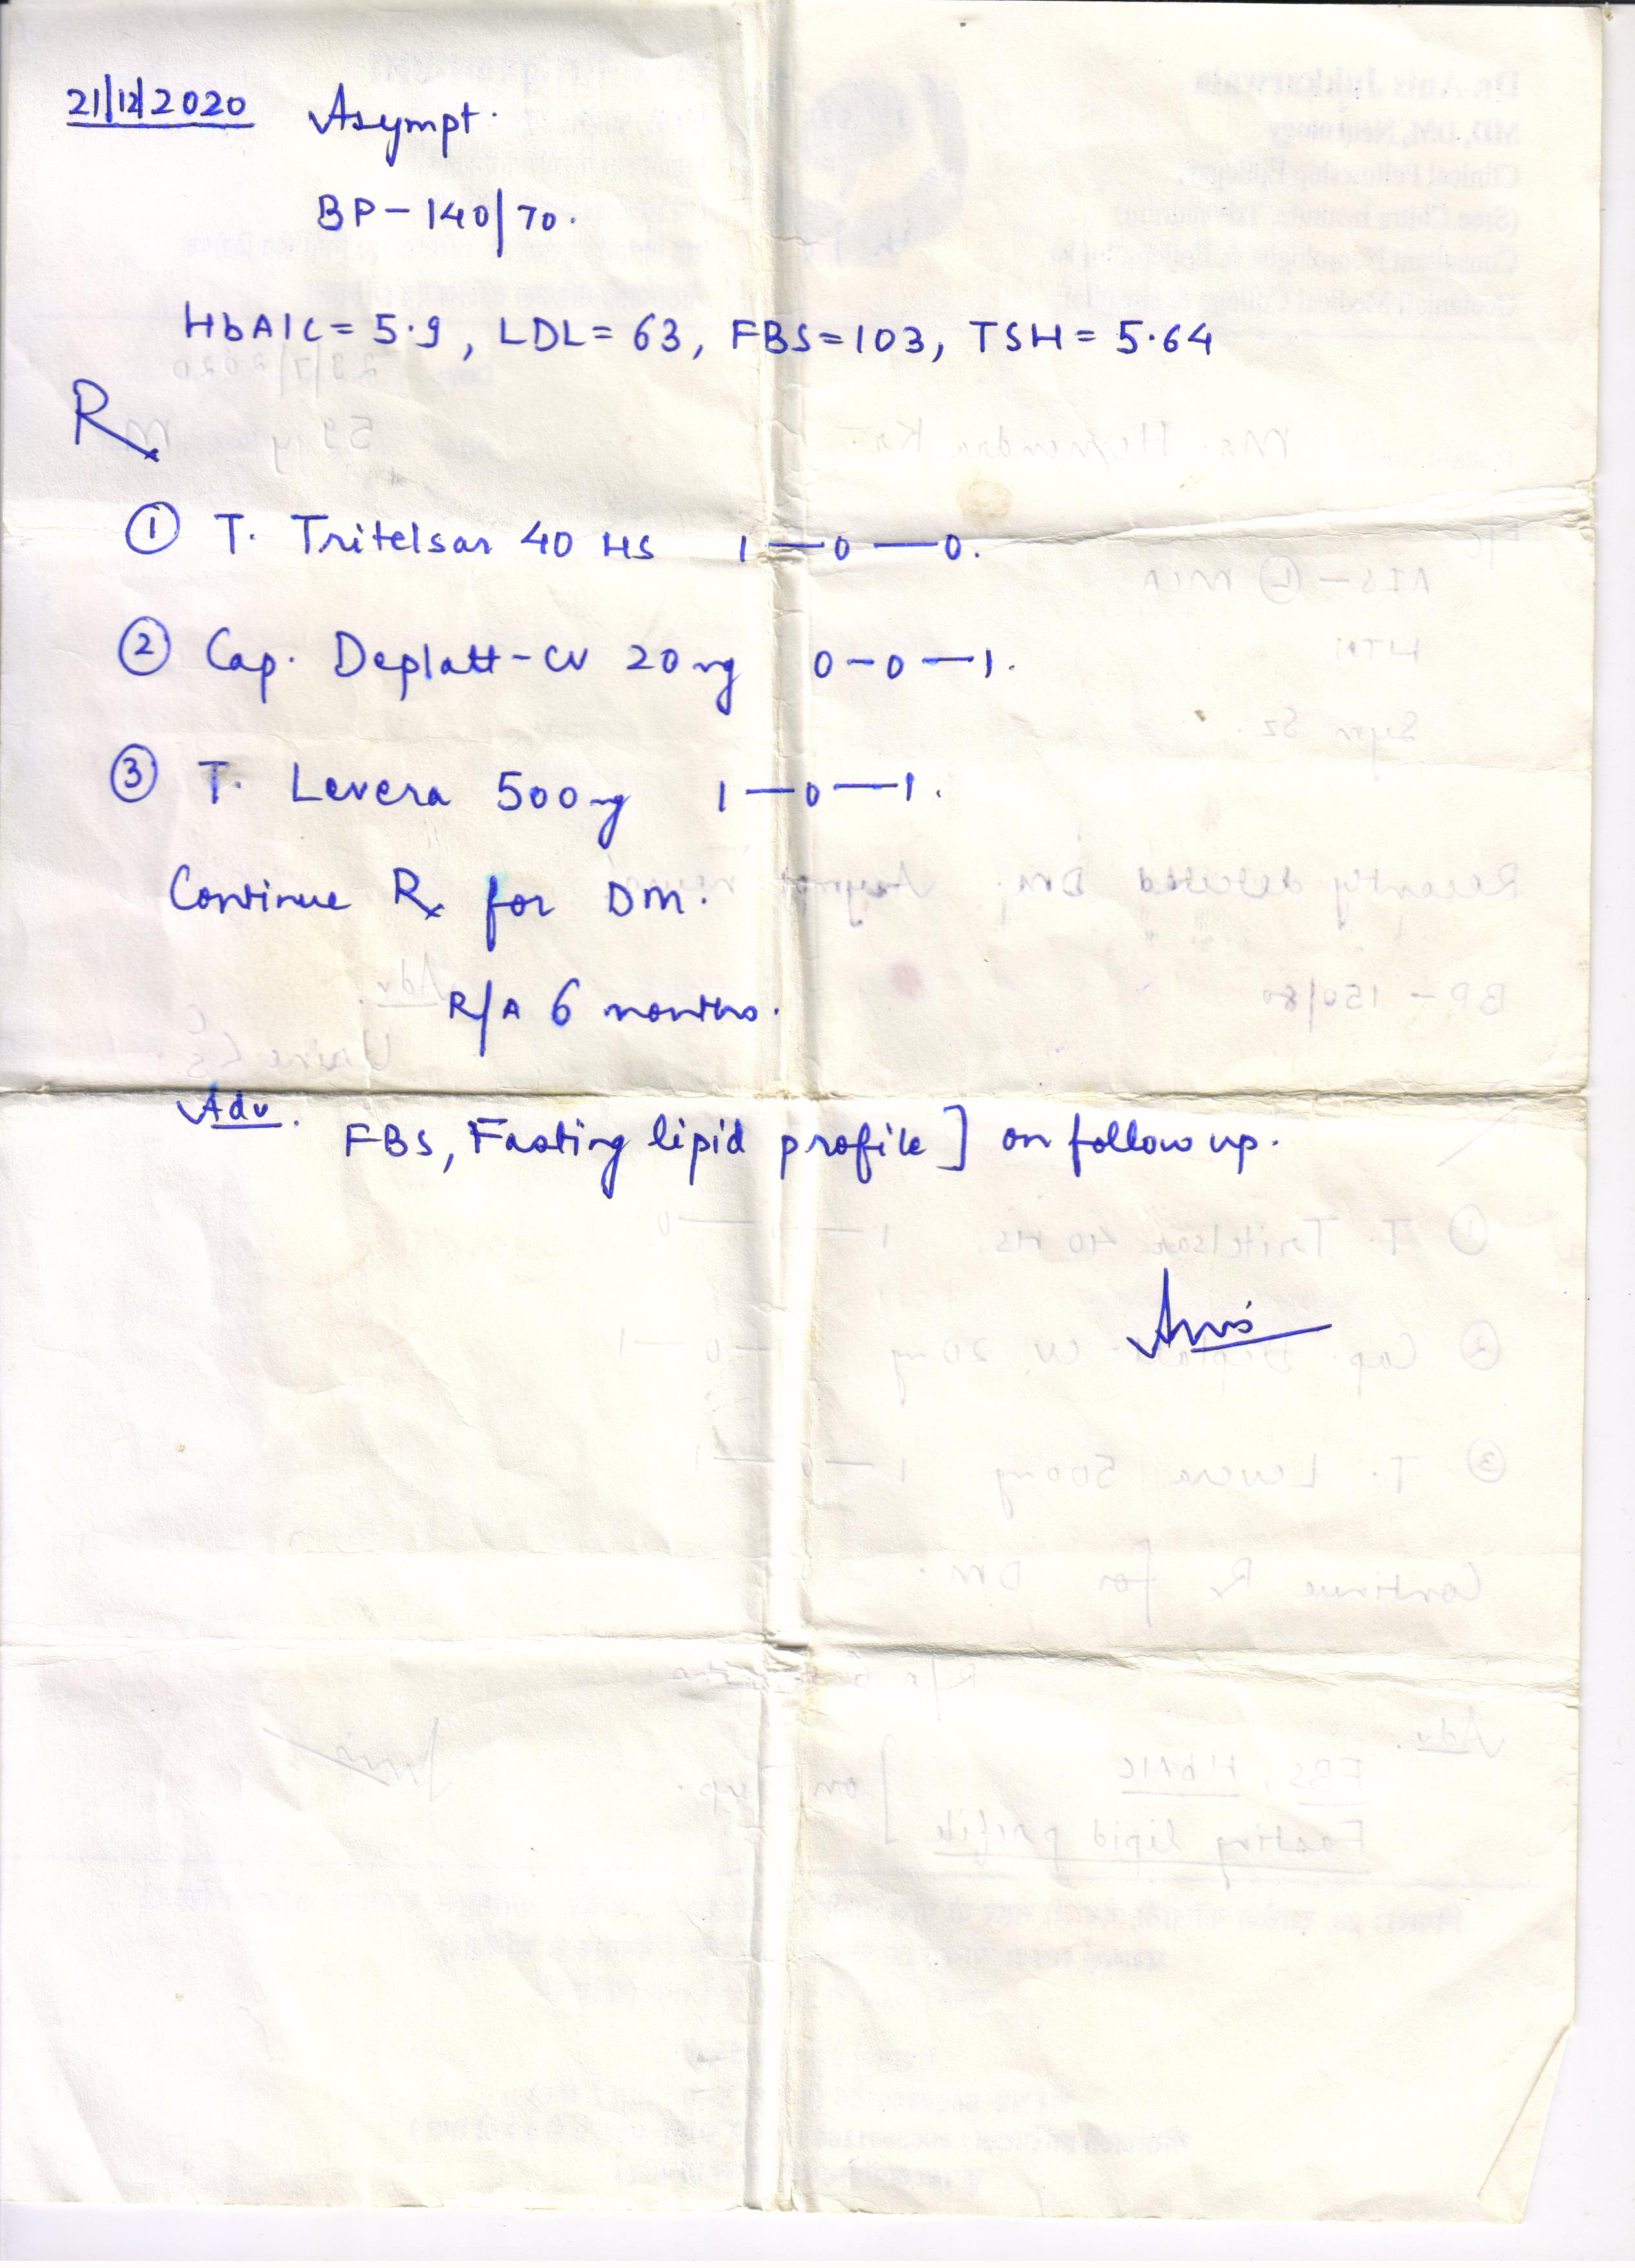 21/12/2020 Asympt.
BP - 140/70.
HbA1c = 5.9, LDL = 63, FBS = 103, TSH = 5.64
Rx
① T. Tritelsar 40 HS 1—0—0.
② Cap. Deplatt-CV 20mg 0-0-1.
③ T. Levera 500mg 1—0—1.
Continue Rx for DM.
R/A 6 months.
Adv.
FBS, Fasting lipid profile] on follow up.
Anis